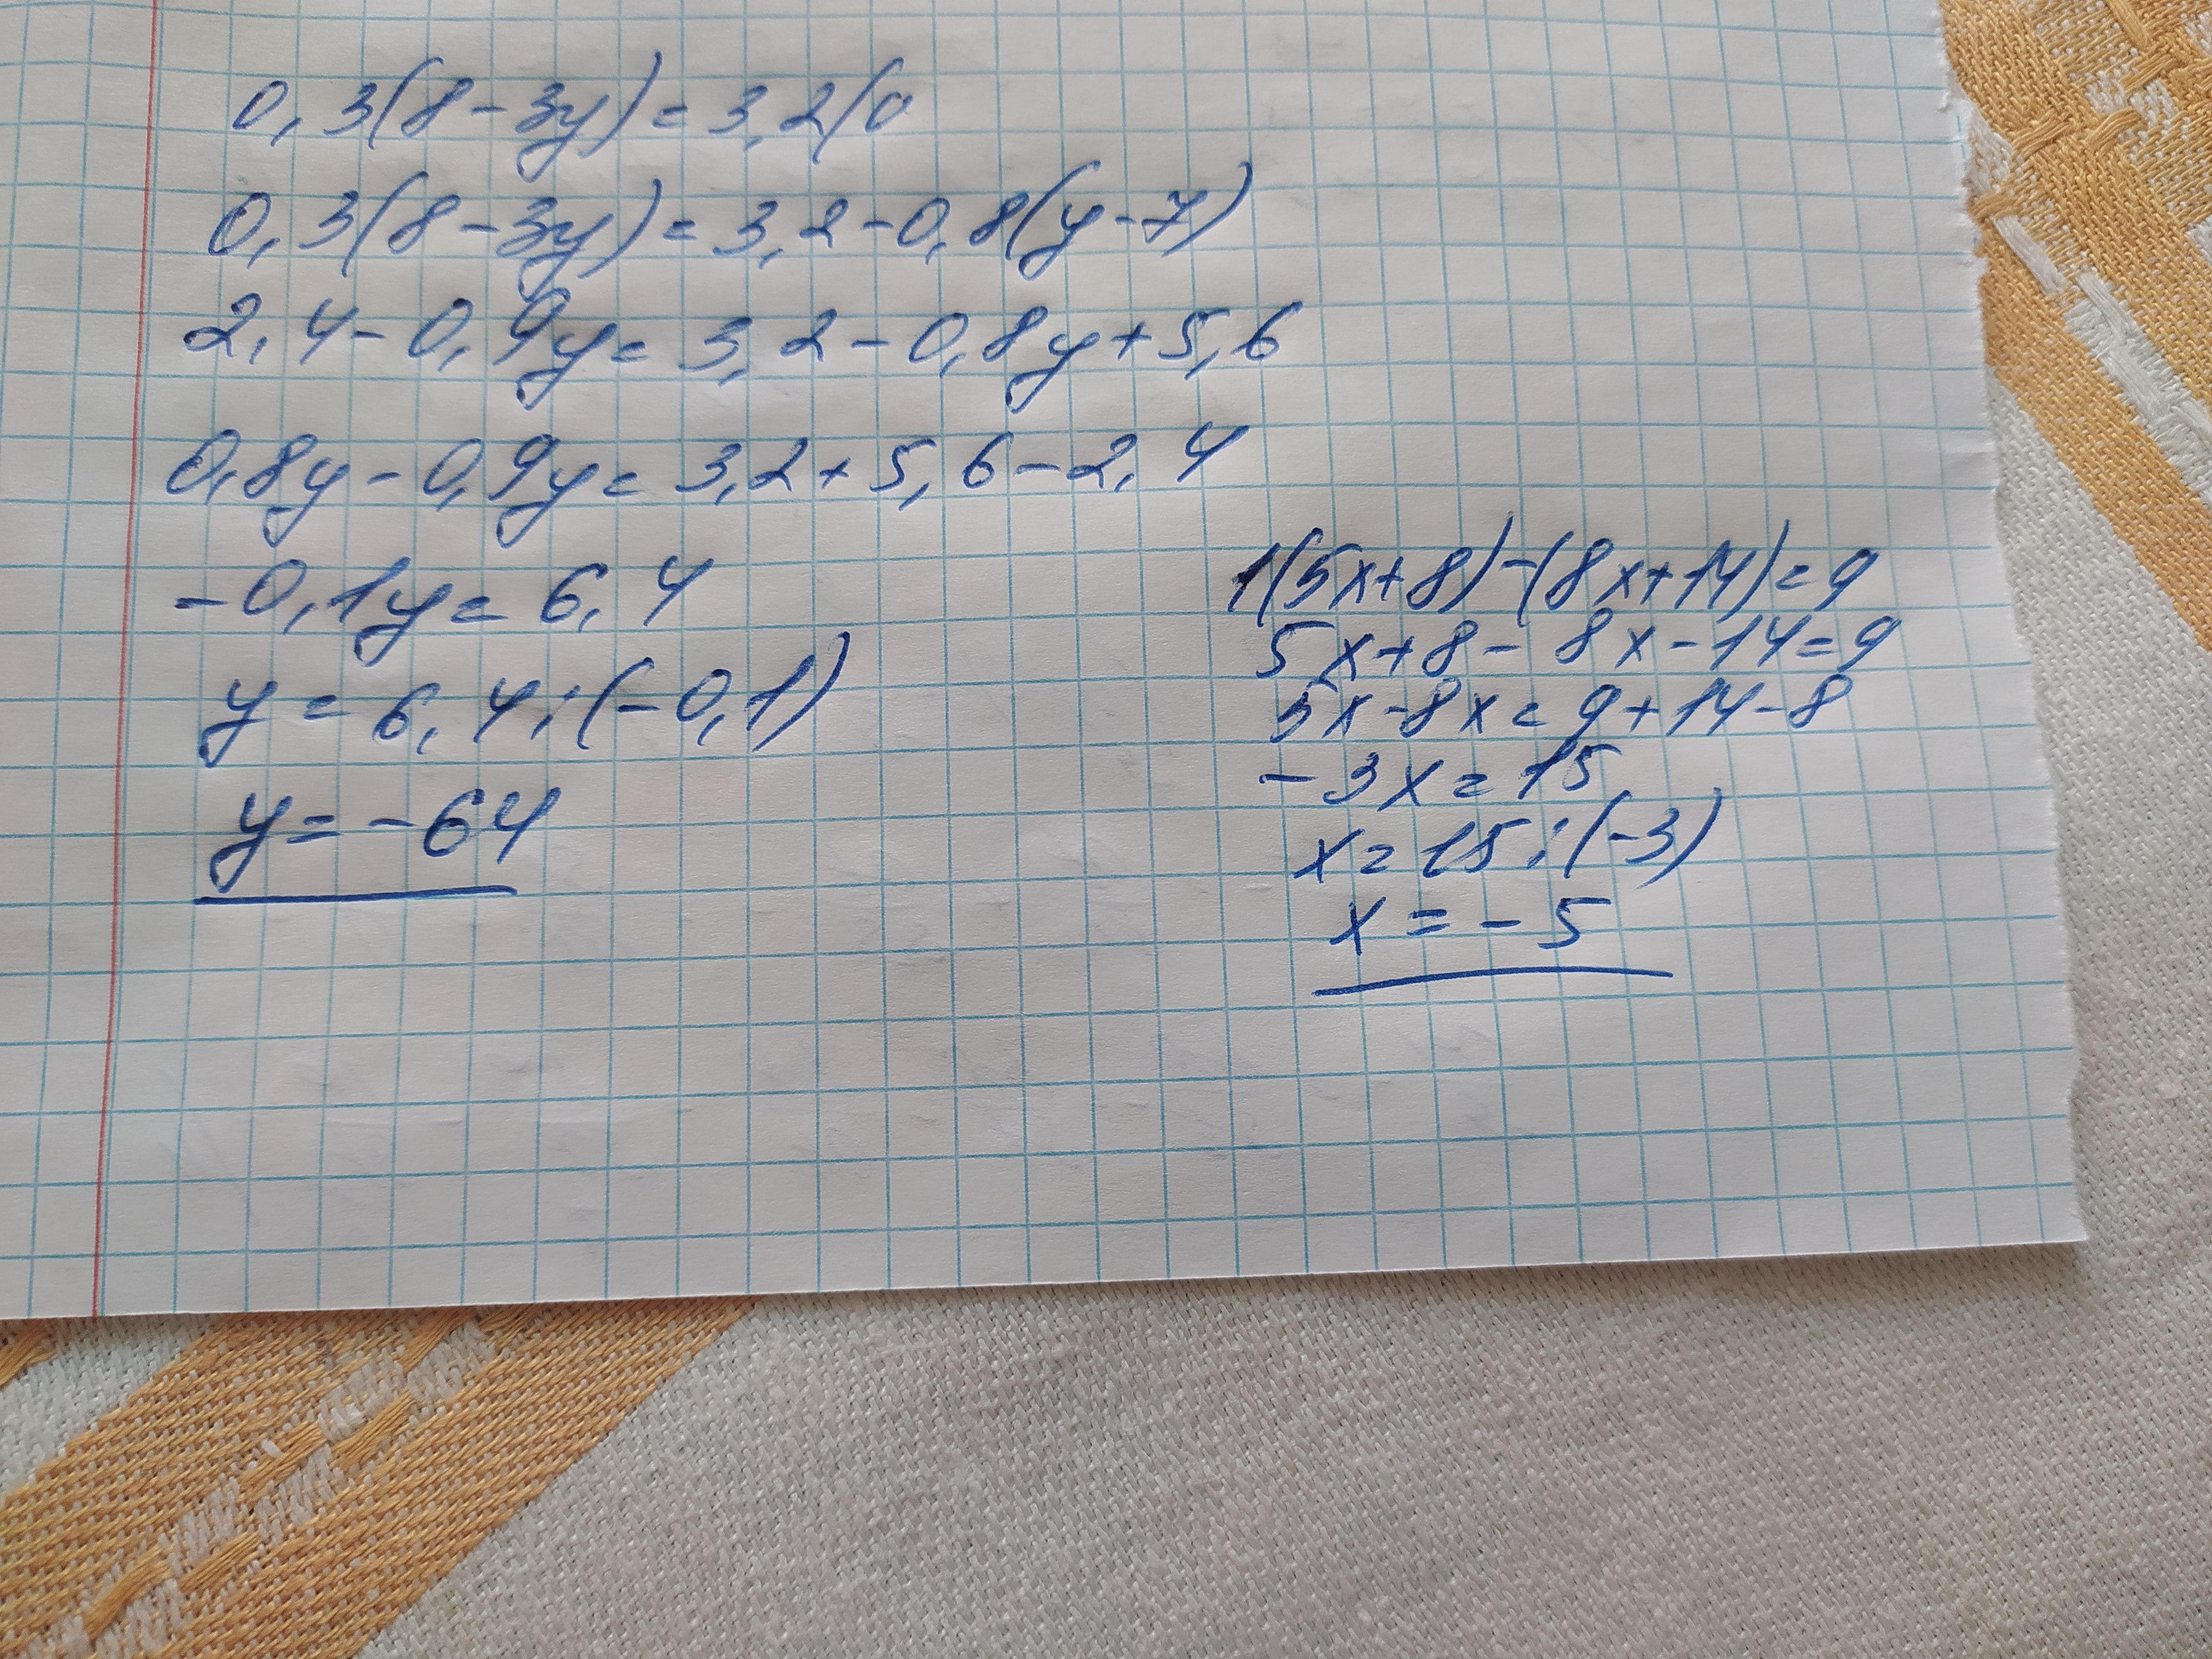 0,3(8-3y)=3,2(0
0,3(8-3y)=3,2-0,8(y-7)
2,4-0,9y=3,2-0,8y+5,6
0,8y-0,9y=3,2+5,6-2,4
-0,1y=6,4
y=6,4:(-0,1)
y=-64
1(5x+8)-(8x+14)=9
5x+8-8x-14=9
5x-8x=9+14-8
-3x=15
x=15:(-3)
x=-5